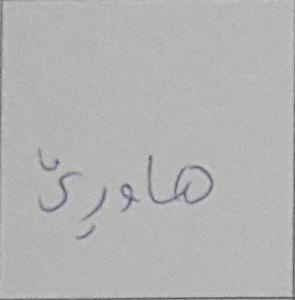 هاوڕێ